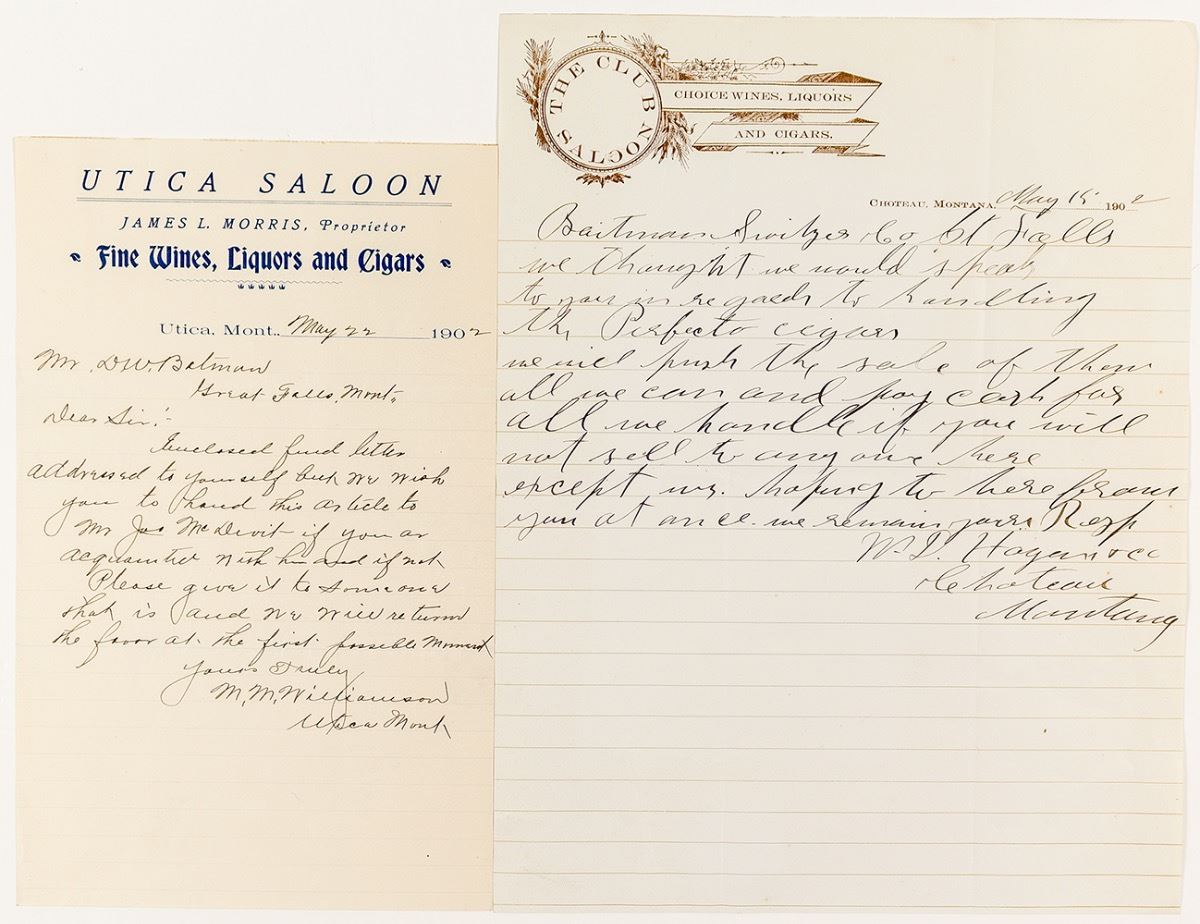 UTICA SALOON
JAMES L. MORRIS, Proprietor
Fine Wines, Liquors and Cigars
Utica, Mont., May 22 1902
Mr. D.W. Batman
Great Falls, Mont.
Dear Sir:-
Enclosed find letter
addressed to yourself but we wish
you to hand this article to
Mr Jas McDevit if you ar
acquainted with him and if not
Please give it to someone
that is and we will return
the favor at the first possible Moment
yours Truly
M. M. Williamson
Utica Mont
THE CLUB SALOON
CHOICE WINES, LIQUORS
AND CIGARS.
CHOTEAU, MONTANA, May 15 1902
Baitman Switzer & Co Gt Falls
we thought we would speak
to you in regards to handling
the Perfecto cigars
we will push the sale of them
all we can and pay cash for
all we handle if you will
not sell to anyone here
except us. hoping to here from
you at once we remain yours Resp
W. D. Hagen & co
Choteau
Montana